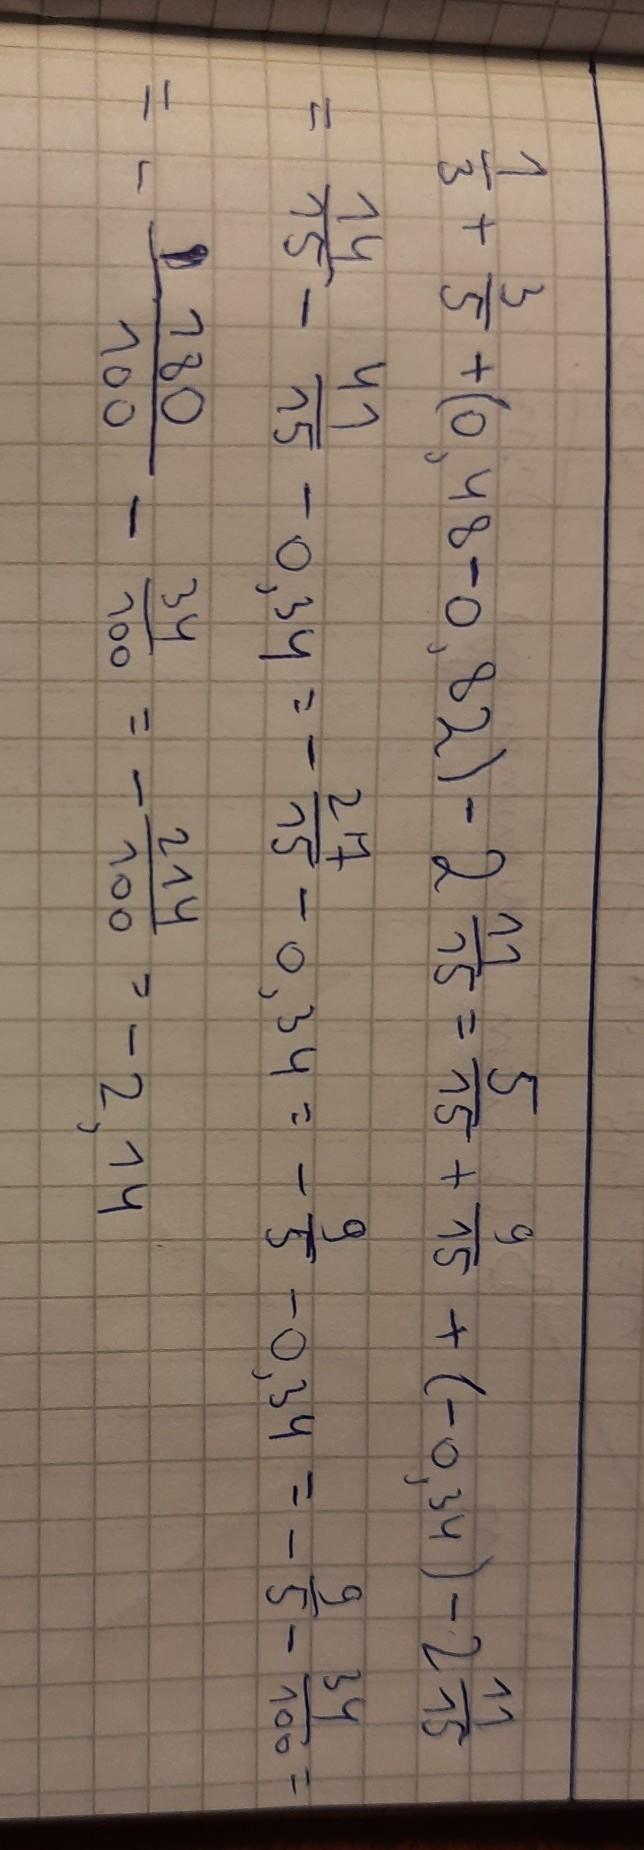 1/3 + 3/5 + (0,48 - 0,82) - 2 11/15 = 5/15 + 9/15 + (-0,34) - 2 11/15
= 14/15 - 41/15 - 0,34 = - 27/15 - 0,34 = - 9/5 - 0,34 = - 9/5 - 34/100 =
= - 180/100 - 34/100 = - 214/100 = - 2,14